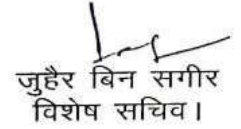 जुहैर बिन सगीर
विशेष सचिव।